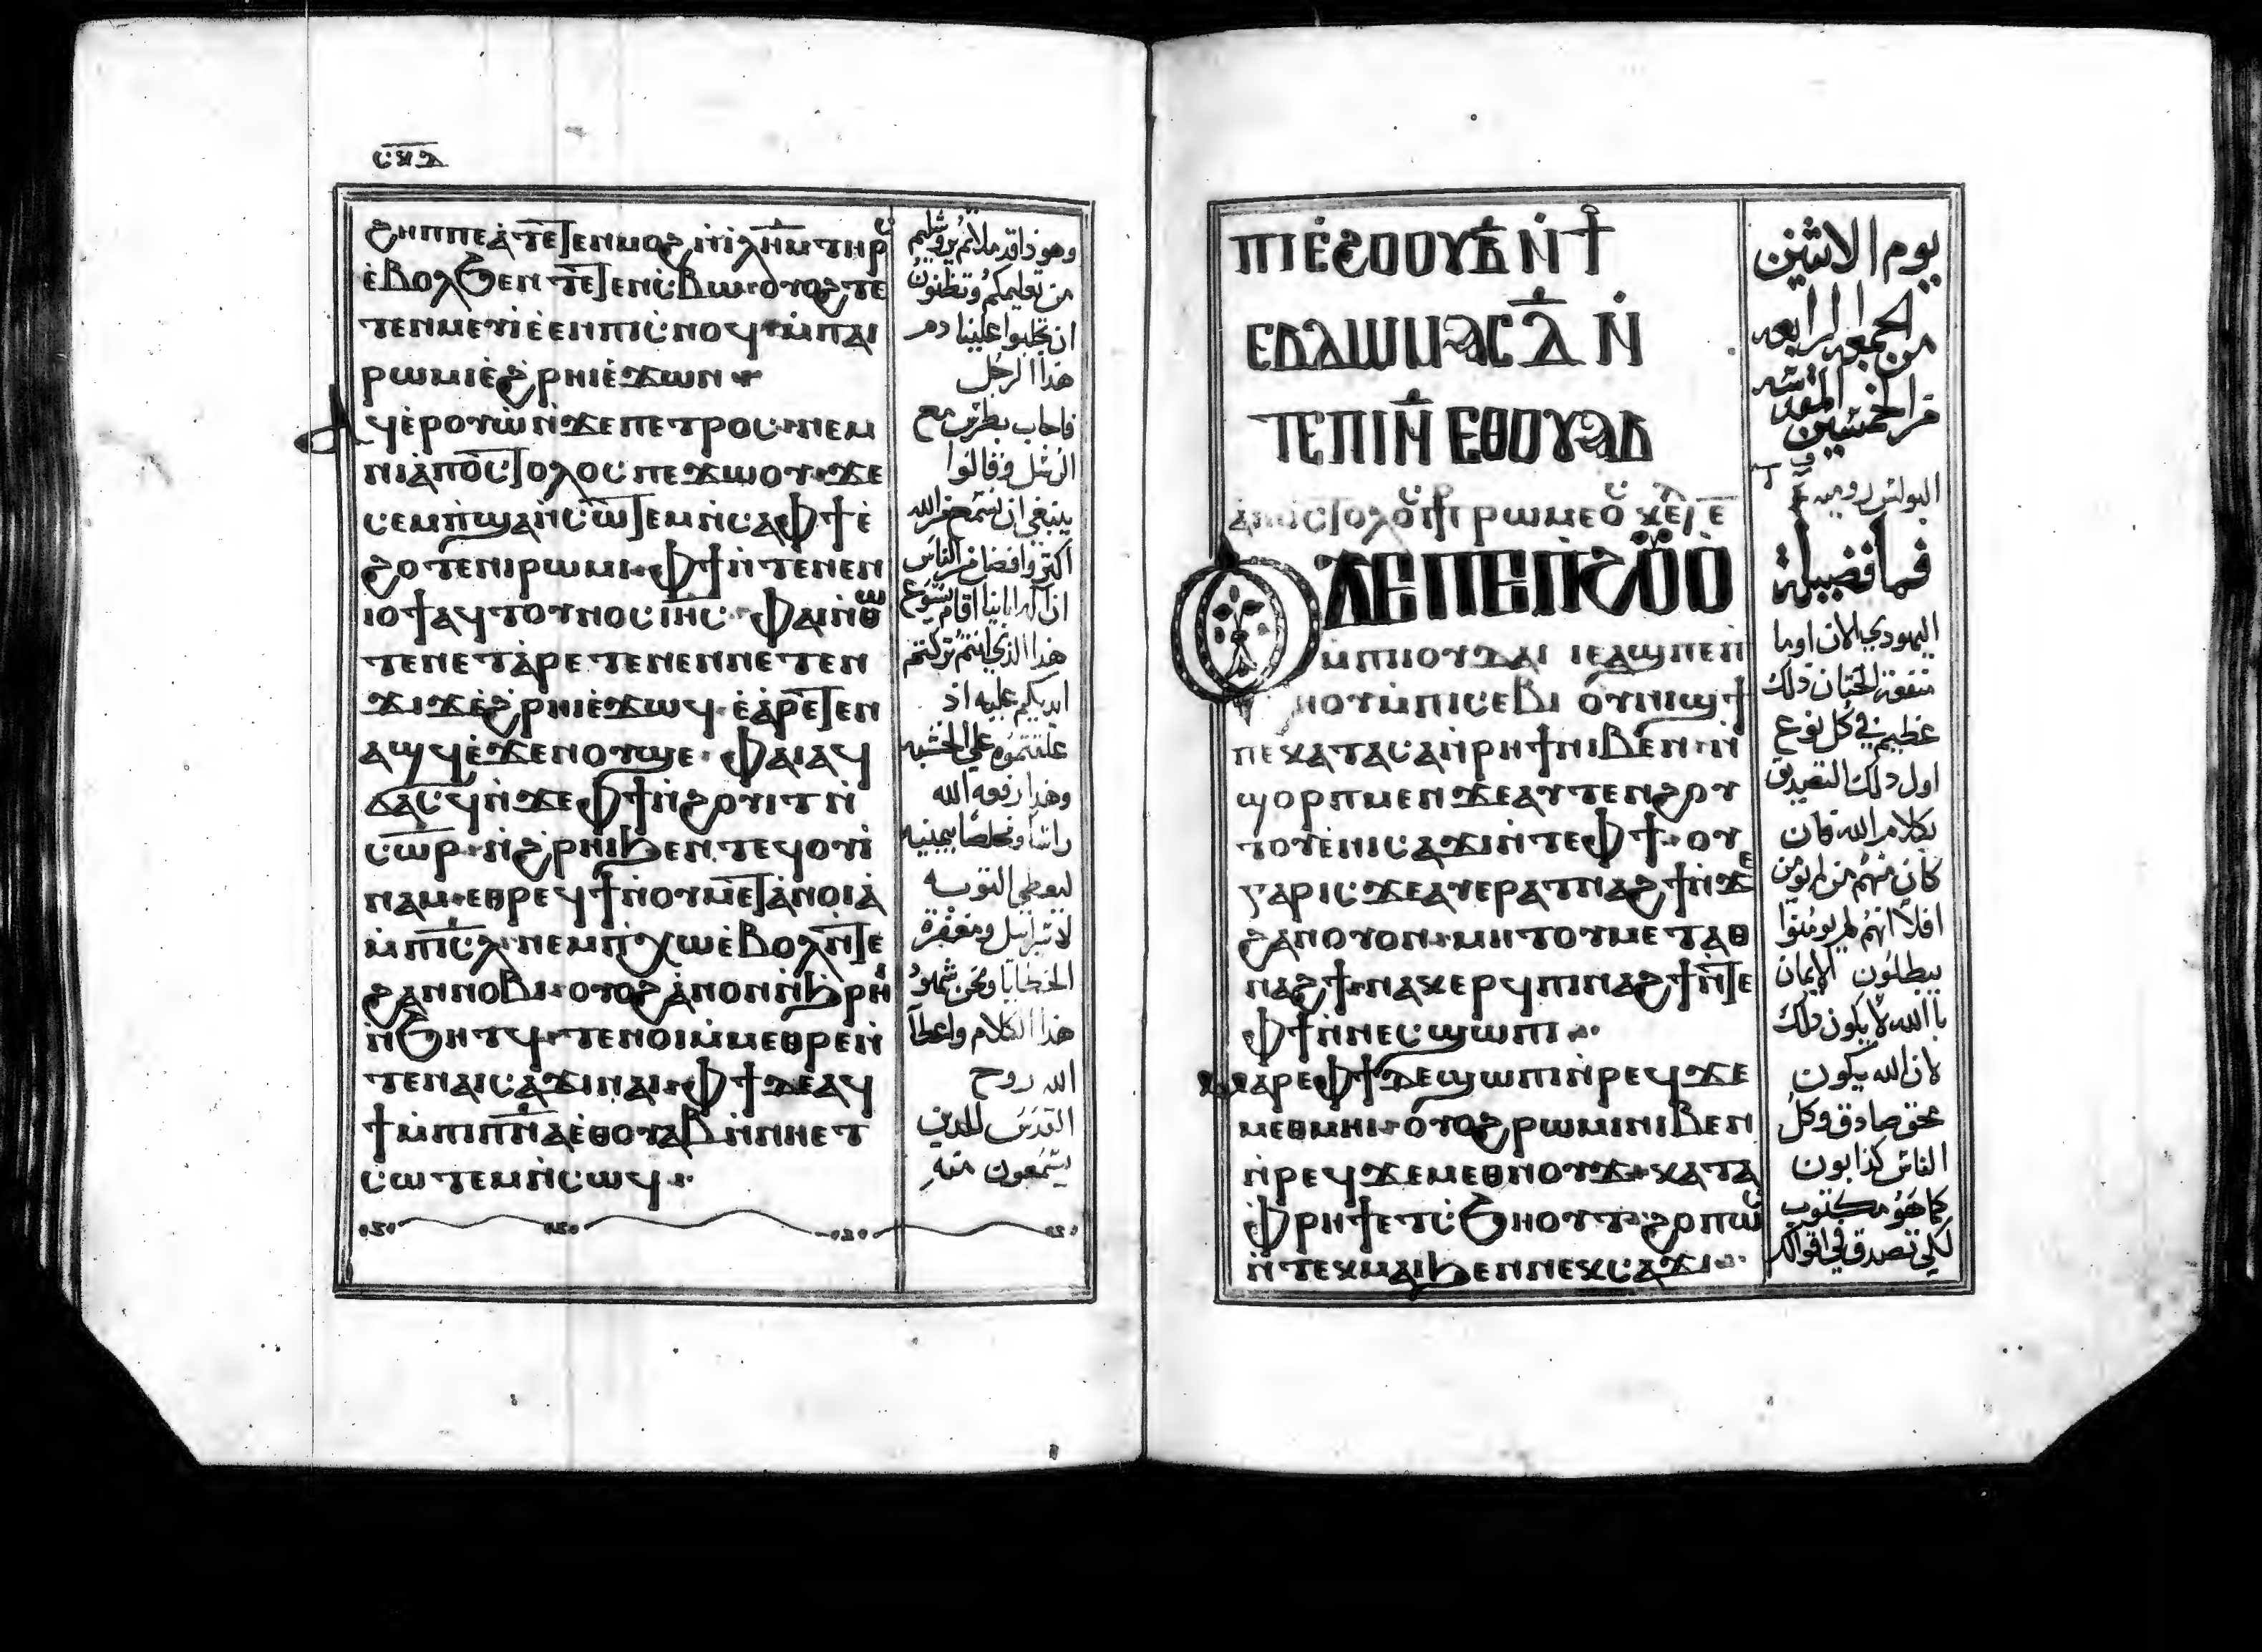 ϩⲏⲡⲡⲉ ⲁ̀ⲧⲉⲧⲉⲛⲙⲟϩ ⲛ̀ⲓⲗ̅ⲏ̅ⲙ̅ ⲧⲏⲣⲥ
ⲉ̀ⲃⲟⲗϧⲉⲛ ⲧⲉⲧⲉⲛⲥ̀ⲃⲱ ⲟⲩⲟϩ ⲧⲉ
ⲧⲉⲛⲙⲉⲩⲓ ⲉ̀ⲉⲛ ⲡⲓⲥ̀ⲛⲟϥ ⲙ̀ⲡⲁⲓ
ⲣⲱⲙⲓ ⲉ̀ϩⲣⲏⲓ ⲉ̀ϫⲱⲛ
ⲁϥⲉ̀ⲣⲟⲩⲱ̀ ⲛ̀ϫⲉ ⲡⲉⲧⲣⲟⲥ ⲛⲉⲙ
ⲛⲓⲁ̀ⲡⲟⲥⲧⲟⲗⲟⲥ ⲡⲉϫⲱⲟⲩ ϫⲉ
ⲥⲉⲙ̀ⲡϣⲁ ⲛ̀ⲥⲱⲧⲉⲙ ⲛ̀ⲥⲁ ⲫϯ ⲉ̀
ϩⲟⲧⲉ ⲛⲓⲣⲱⲙⲓ ⲫϯ ⲛ̀ⲧⲉ ⲛⲉⲛ
ⲓⲟϯ ⲁϥⲧⲟⲩⲛⲟⲥ ⲓⲏ̅ⲥ̅ ⲫⲁⲓ ⲛ̀ⲑⲱ
ⲧⲉⲛ ⲉⲧⲁⲣⲉⲧⲉⲛⲉⲛ ⲛⲉⲧⲉⲛ
ϫⲓϫ ⲉ̀ϩⲣⲏⲓ ⲉ̀ϫⲱϥ ⲉ̀ⲁⲣⲉⲧⲉⲛ
ⲁϣϥ ⲉ̀ϫⲉⲛ ⲟⲩϣⲉ ⲫⲁⲓ ⲁϥ
ϭⲁⲥϥ ⲛ̀ϫⲉ ⲫϯ ⲛ̀ϩⲟⲩⲓⲧ ⲛ̀
ⲥⲱ̅ⲣ̅ ⲛ̀ϩⲣⲏⲓ ϧⲉⲛ ⲧⲉϥⲟⲩⲓ
ⲛⲁⲙ ⲉⲑⲣⲉϥϯ ⲛ̀ⲟⲩⲙⲉⲧⲁⲛⲟⲓⲁ
ⲙ̀ⲡⲓⲥ̅ⲗ̅ ⲛⲉⲙ ⲡ̀ⲭⲱ ⲉ̀ⲃⲟⲗ ⲛ̀ⲧⲉ
ϩⲁⲛⲛⲟⲃⲓ ⲟⲩⲟϩ ⲁⲛⲟⲛ ⲛ̀ϧⲣⲏⲓ
ⲛ̀ϧⲏⲧϥ ⲧⲉⲛⲟⲓ ⲙ̀ⲙⲉⲑⲣⲉ ⲛ̀
ⲧⲉ ⲛⲁⲓⲥⲁϫⲓ ⲛⲁⲓ ⲫϯ ϫⲉ ⲁϥ
ϯ ⲙ̀ⲡⲓⲡ̅ⲛ̅ⲁ̅ ⲉⲑⲟⲩⲁⲃ ⲛ̀ⲛⲏⲉⲧ
ⲥⲱⲧⲉⲙ ⲛ̀ⲥⲱϥ
وهوذا قد ملاتم يروشليم
من تعليمكم وتظنون
ان تجلبوا علينا دم
هذا الرجل
فاجاب بطرس مع
الرسل وقالوا
ينبغي ان نسمع من الله
اكثر وافضل من الناس
اله ابائنا اقام يسوع
هذا الذي انتم تركتم
ايديكم عليه اذ
علقتموه على الخشبه
وهذا رفعه الله
راسا ومخلصا بيمينه
ليعطي التوبه
لاسرائيل ومغفرة
الخطايا ونحن شهود
هذا الكلام واعطا
الله روح
القدس للذين
يسمعون منه
ⲡⲓⲉ̀ϩⲟⲟⲩ ⲃ̅ ⲛ̀ϯ
ⲉⲃⲇⲱⲙⲁⲥ ⲇ̅ ⲛ̀
ⲧⲉ ⲡⲓⲛ̅ ⲉⲑⲟⲩⲁⲃ
ⲁⲡⲟⲥⲧⲟⲗⲟⲥ ⲡⲣ ⲣⲱⲙⲉⲟⲥ
ⲟⲩ ⲇⲉ ⲡⲉ ⲡ̀ϩⲟⲩⲟ̀
ⲙ̀ⲡⲓⲓⲟⲩⲇⲁⲓ ⲓⲉ ⲁϣ ⲡⲉ ⲡ̀
ϩⲏⲟⲩ ⲙ̀ⲡⲓⲥⲉⲃⲓ ⲟⲩⲛⲓϣϯ
ⲡⲉ ⲕⲁⲧⲁ ⲥⲁ ⲛ̀ⲣⲏϯ ⲛⲓⲃⲉⲛ ⲛ̀
ϣⲟⲣⲡ ⲙⲉⲛ ϫⲉ ⲁⲩⲧⲉⲛϩⲟⲩ
ⲧⲟⲩ ⲉ̀ⲛⲓⲥⲁϫⲓ ⲛ̀ⲧⲉ ⲫϯ ⲟⲩ
ⲅⲁⲣ ⲓⲥϫⲉ ⲁⲩⲉⲣⲁⲧⲛⲁϩϯ ⲛ̀ϫⲉ
ϩⲁⲛⲟⲩⲟⲛ ⲙⲏ ⲧⲟⲩⲙⲉⲧⲁⲑ
ⲛⲁϩϯ ⲛⲁⲕⲉⲣϥ ⲡⲓⲛⲁϩϯ ⲛ̀ⲧⲉ
ⲫϯ ⲛ̀ⲛⲉⲥϣⲱⲡⲓ
ⲙⲁⲣⲉ ⲫϯ ⲇⲉ ϣⲱⲡⲓ ⲛ̀ⲣⲉϥϫⲉ
ⲙⲉⲑⲙⲏⲓ ⲟⲩⲟϩ ⲣⲱⲙⲓ ⲛⲓⲃⲉⲛ
ⲛ̀ⲣⲉϥϫⲉⲙⲉⲑⲛⲟⲩϫ ⲕⲁⲧⲁ
ⲫⲣⲏϯ ⲉⲧⲥ̀ϧⲏⲟⲩⲧ ϩⲟⲡⲱⲥ
ⲛ̀ⲧⲉⲕⲙⲁⲓ ϧⲉⲛ ⲛⲉⲕⲥⲁϫⲓ
يوم الاثنين
من الجمعه الرابعه
من الخمسين المقدسه
البولس روميه
فما فضيلة
اليهودي الان او ما
منفعة الختان ذلك
عظيم في كل نوع
اول ذلك التصديق
بكلام الله فان
كان منهم من لم يومن
افلا انهم لم يومنوا
يبطلون الايمان
بالله لا يكون ذلك
لان الله يكون
محق صادق وكل
الناس كذابون
كما هو مكتوب
لكي تصدق في اقوالك